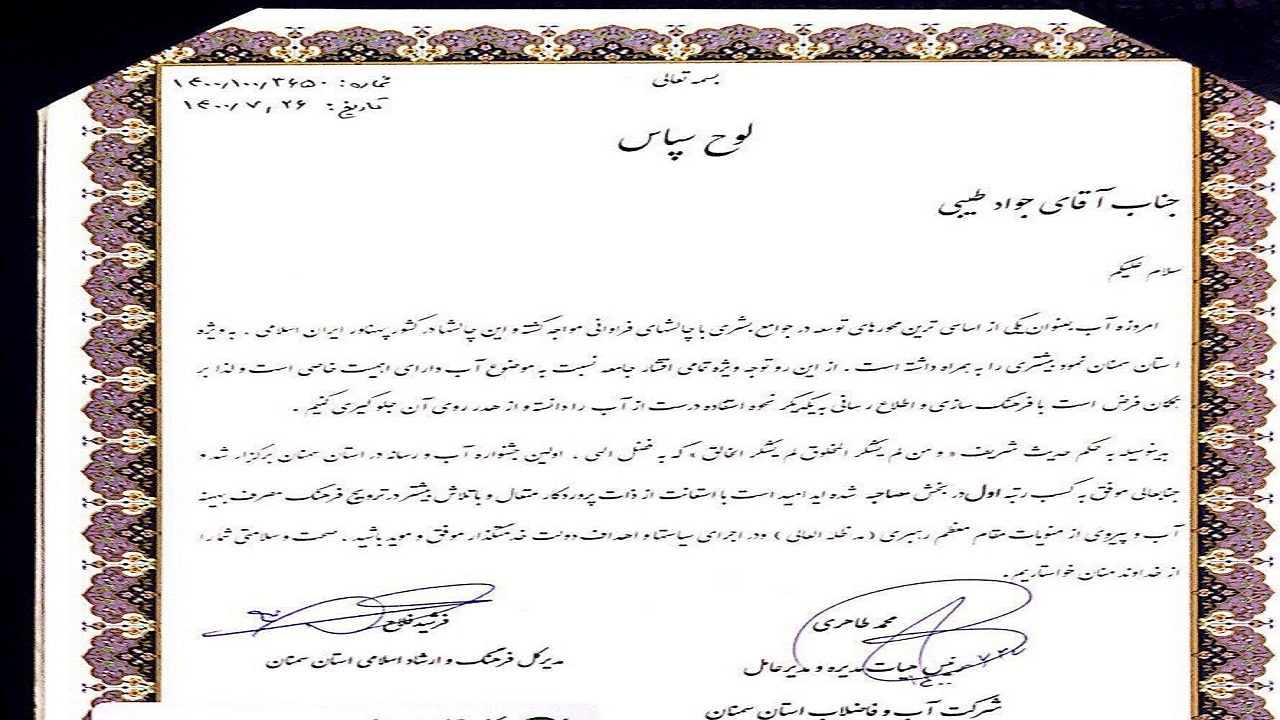 بسمه تعالی
شماره: ۱۴۰۰/۱۰۰/۳۶۵۰
تاریخ: ۱۴۰۰/۷/۲۶
لوح سپاس
جناب آقای جواد طیبی
سلام علیکم
امروزه آب بعنوان یکی از اساسی ترین محورهای توسعه در جوامع بشری با چالشهای فراوانی مواجه گشته و این چالشها در کشور پهناور ایران اسلامی . به ویژه
استان سمنان نمود بیشتری را به همراه داشته است . از این رو توجه ویژه تمامی اقشار جامعه نسبت به موضوع آب دارای اهمیت خاصی است و لذا بر
همگان فرض است با فرهنگ سازی و اطلاع رسانی به یکدیگر نحوه استفاده درست از آب را دانسته و از هدر روی آن جلوگیری کنیم .
بدینوسیله به حکم حدیث شریف « و من لم یشکر المخلوق لم یشکر الخالق » که به فضل الهی . اولین جشنواره آب و رسانه در استان سمنان برگزار شد و
جنابعالی موفق به کسب رتبه اول در بخش مصاحبه شده اید امید است با استعانت از ذات پروردگار متعال و با تلاش بیشتر در ترویج فرهنگ مصرف بهینه
آب و پیروی از منویات مقام معظم رهبری (مد ظله العالی) و در اجرای سیاستها و اهداف دولت خدمتگذار موفق و موید باشید . صحت و سلامتی شما را
از خداوند منان خواستاریم.
محمد طاهری
رئیس هیات مدیره و مدیرعامل
شرکت آب و فاضلاب استان سمنان
فرشید فلاح
مدیرکل فرهنگ و ارشاد اسلامی استان سمنان